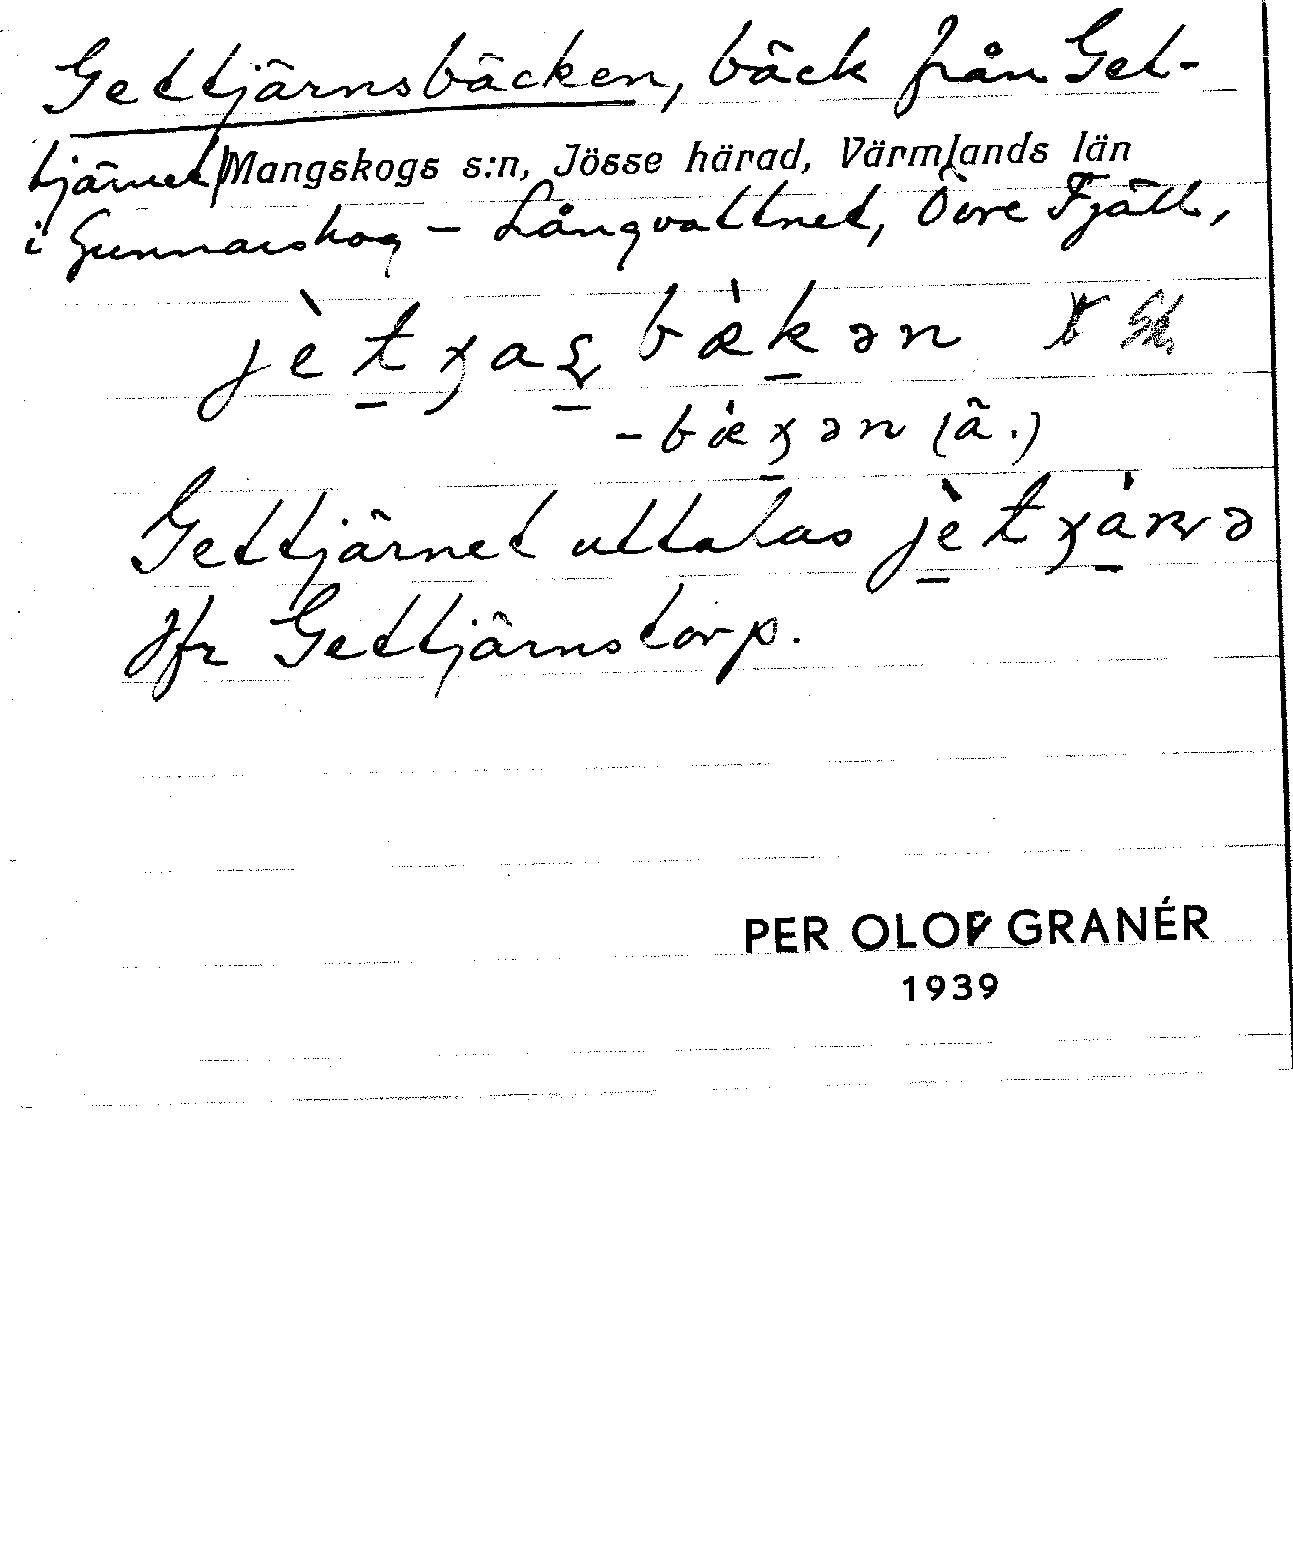 Gettjärnsbäcken, bäck från Get-
tjärnet/Mangskogs s:n, Jösse härad, Värmlands län
i Gunnarskog – Långvattnet, Övre Fjäll,
jètɣaʂbækən
-bæɣən (ä.)
Gettjärnet uttalas jètɣanə
Jfr Gettjärnstorp.
PER OLOF GRANÉR
1939